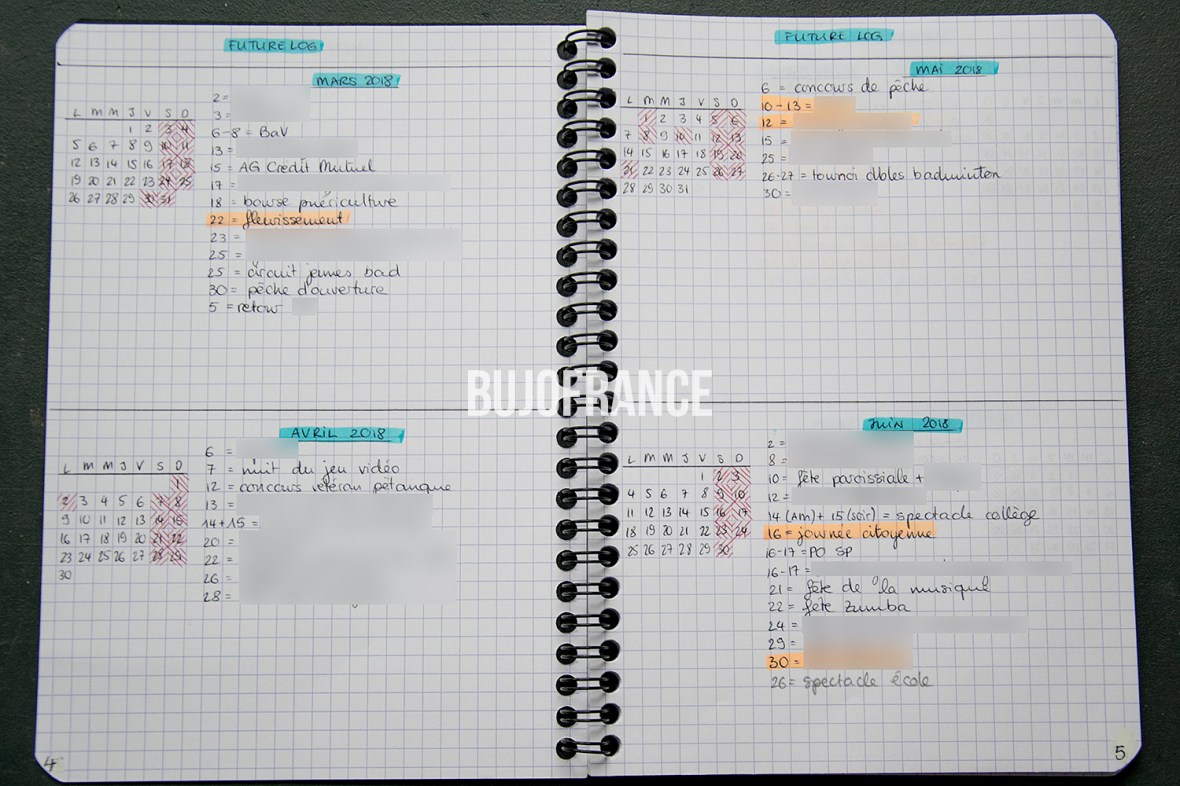 FUTURE LOG
MARS 2018
L M M J V S D
1 2 3 4
5 6 7 8 9 10 11
12 13 14 15 16 17 18
19 20 21 22 23 24 25
26 27 28 29 30 31
2 =
3 =
6-8 = BaV
13 =
15 = AG Crédit Mutuel
17 =
18 = bourse puériculture
22 = fleurissement
23 =
25 =
25 = circuit jeunes bad
30 = pêche d'ouverture
5 = retour
AVRIL 2018
L M M J V S D
1
2 3 4 5 6 7 8
9 10 11 12 13 14 15
16 17 18 19 20 21 22
23 24 25 26 27 28 29
30
6 =
7 = nuit du jeu vidéo
12 = concours vétéran pétanque
13 =
14+15 =
20 =
22 =
26 =
28 =
4
BUJOFRANCE
FUTURE LOG
MAI 2018
L M M J V S D
1 2 3 4 5 6
7 8 9 10 11 12 13
14 15 16 17 18 19 20
21 22 23 24 25 26 27
28 29 30 31
6 = concours de pêche
10-13 =
12 =
15 =
25 =
26-27 = tournoi dbles badminton
30 =
JUIN 2018
L M M J V S D
1 2 3
4 5 6 7 8 9 10
11 12 13 14 15 16 17
18 19 20 21 22 23 24
25 26 27 28 29 30
2 =
8 =
10 = fête paroissiale +
12 =
14 (AM) + 15 (soir) = spectacle collège
16 = journée citoyenne
16-17 = PO SP
16-17 =
21 = fête de la musique
22 = fête zumba
24 =
29 =
30 =
26 = spectacle école
5